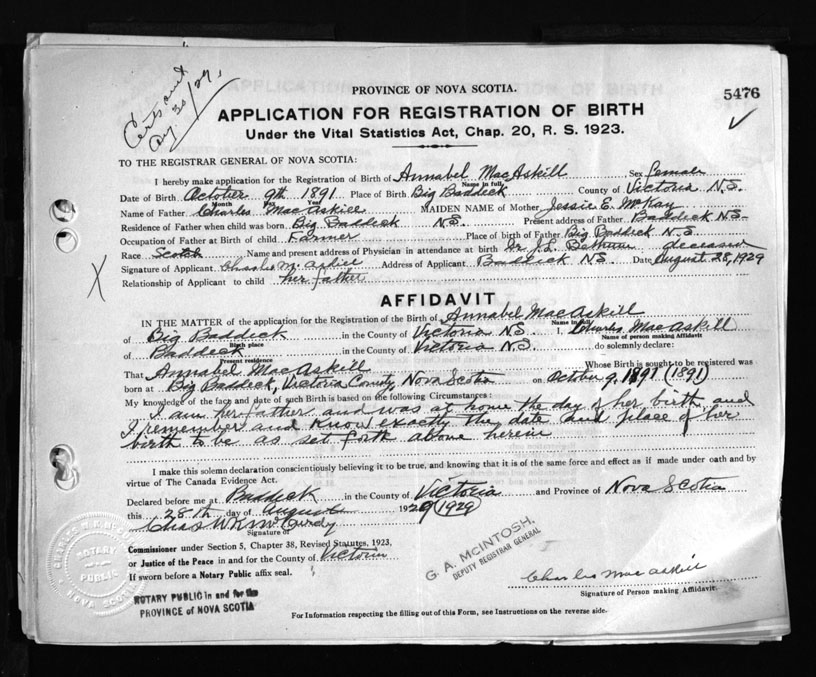 Cert sent
Aug 30/29
PROVINCE OF NOVA SCOTIA.
5476
APPLICATION FOR REGISTRATION OF BIRTH
Under the Vital Statistics Act, Chap. 20, R. S. 1923.
TO THE REGISTRAR GENERAL OF NOVA SCOTIA:
I hereby make application for the Registration of Birth of Annabel MacAskill Sex female
Name in full
Date of Birth October 9th 1891 Place of Birth Big Baddeck County of Victoria N.S.
Month Day Year
Name of Father Charles MacAskill MAIDEN NAME of Mother Jessie E. McKay
Residence of Father when child was born Big Baddeck N.S. Present address of Father Baddeck N.S.
Occupation of Father at Birth of child Farmer Place of birth of Father Big Baddeck N.S.
Race Scotch Name and present address of Physician in attendance at birth Dr. J.L. Bethune deceased
Signature of Applicant Charles McAskill Address of Applicant Baddeck N.S. Date August 28, 1929
Relationship of Applicant to child her father
X
AFFIDAVIT
IN THE MATTER of the application for the Registration of the Birth of Annabel MacAskill
Name in full
of Big Baddeck in the County of Victoria N.S. I, Charles MacAskill
Birth place Name of person making Affidavit
of Baddeck in the County of Victoria N.S. do solemnly declare:
Present residence
That Annabel MacAskill Whose Birth is sought to be registered was
born at Big Baddeck, Victoria County, Nova Scotia on October 9, 1891 (1891)
My knowledge of the fact and date of such Birth is based on the following Circumstances:
I am her father and was at home the day of her birth and
I remember and know exactly the date and place of her
birth to be as set forth above herein
I make this solemn declaration conscientiously believing it to be true, and knowing that it is of the same force and effect as if made under oath and by
virtue of The Canada Evidence Act.
Declared before me at Baddeck in the County of Victoria and Province of Nova Scotia
this 28th day of August 1929 (1929)
Chas W K McCurdy
Signature of
Commissioner under Section 5, Chapter 38, Revised Statutes, 1923,
or Justice of the Peace in and for the County of Victoria
If sworn before a Notary Public affix seal.
G. A. McINTOSH,
DEPUTY REGISTRAR GENERAL
Charles MacAskill
Signature of Person making Affidavit.
NOTARY PUBLIC in and for the
PROVINCE of NOVA SCOTIA
NOTARY
PUBLIC
NOVA SCOTIA
For Information respecting the filling out of this Form, see Instructions on the reverse side.